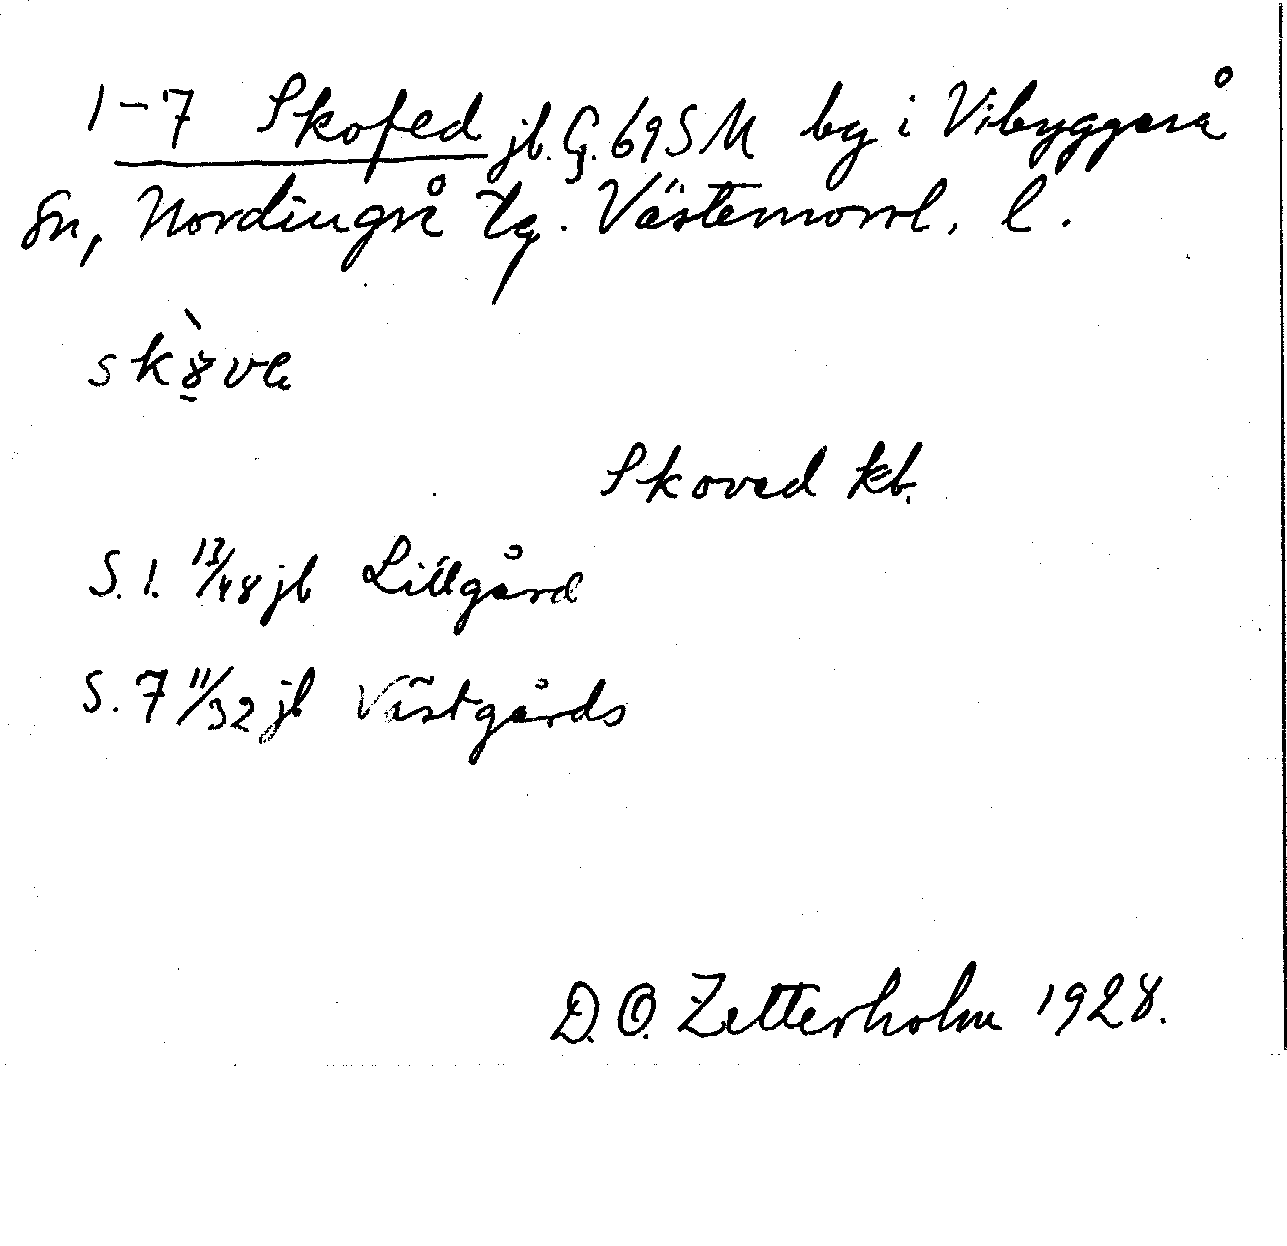 1-7 Skofed jb. G. 69 SM by i Vibyggerå
sn, Nordingrå tg. Västernorrl. l.
Skoved kb.
S. 1. 13/48 jb Lillgård
S. 7 11/32 jb Västgårds
D. O. Zetterholm 1928.